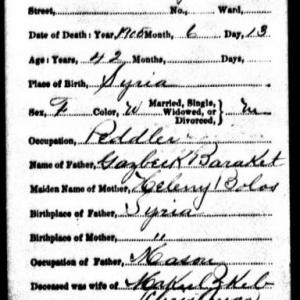 Street, No., Ward,
Date of Death: Year, 1905 Month, 6 Day, 13
Age: Years, 42 Months, Days,
Place of Birth, Syria
Sex, F Color, W Married, Single, Widowed, or Divorced, } m
Occupation, Peddler
Name of Father, Gazbeek Baraket
Maiden Name of Mother, Heleny Bolos
Birthplace of Father, Syria
Birthplace of Mother, "
Occupation of Father, Mason
Deceased was wife of